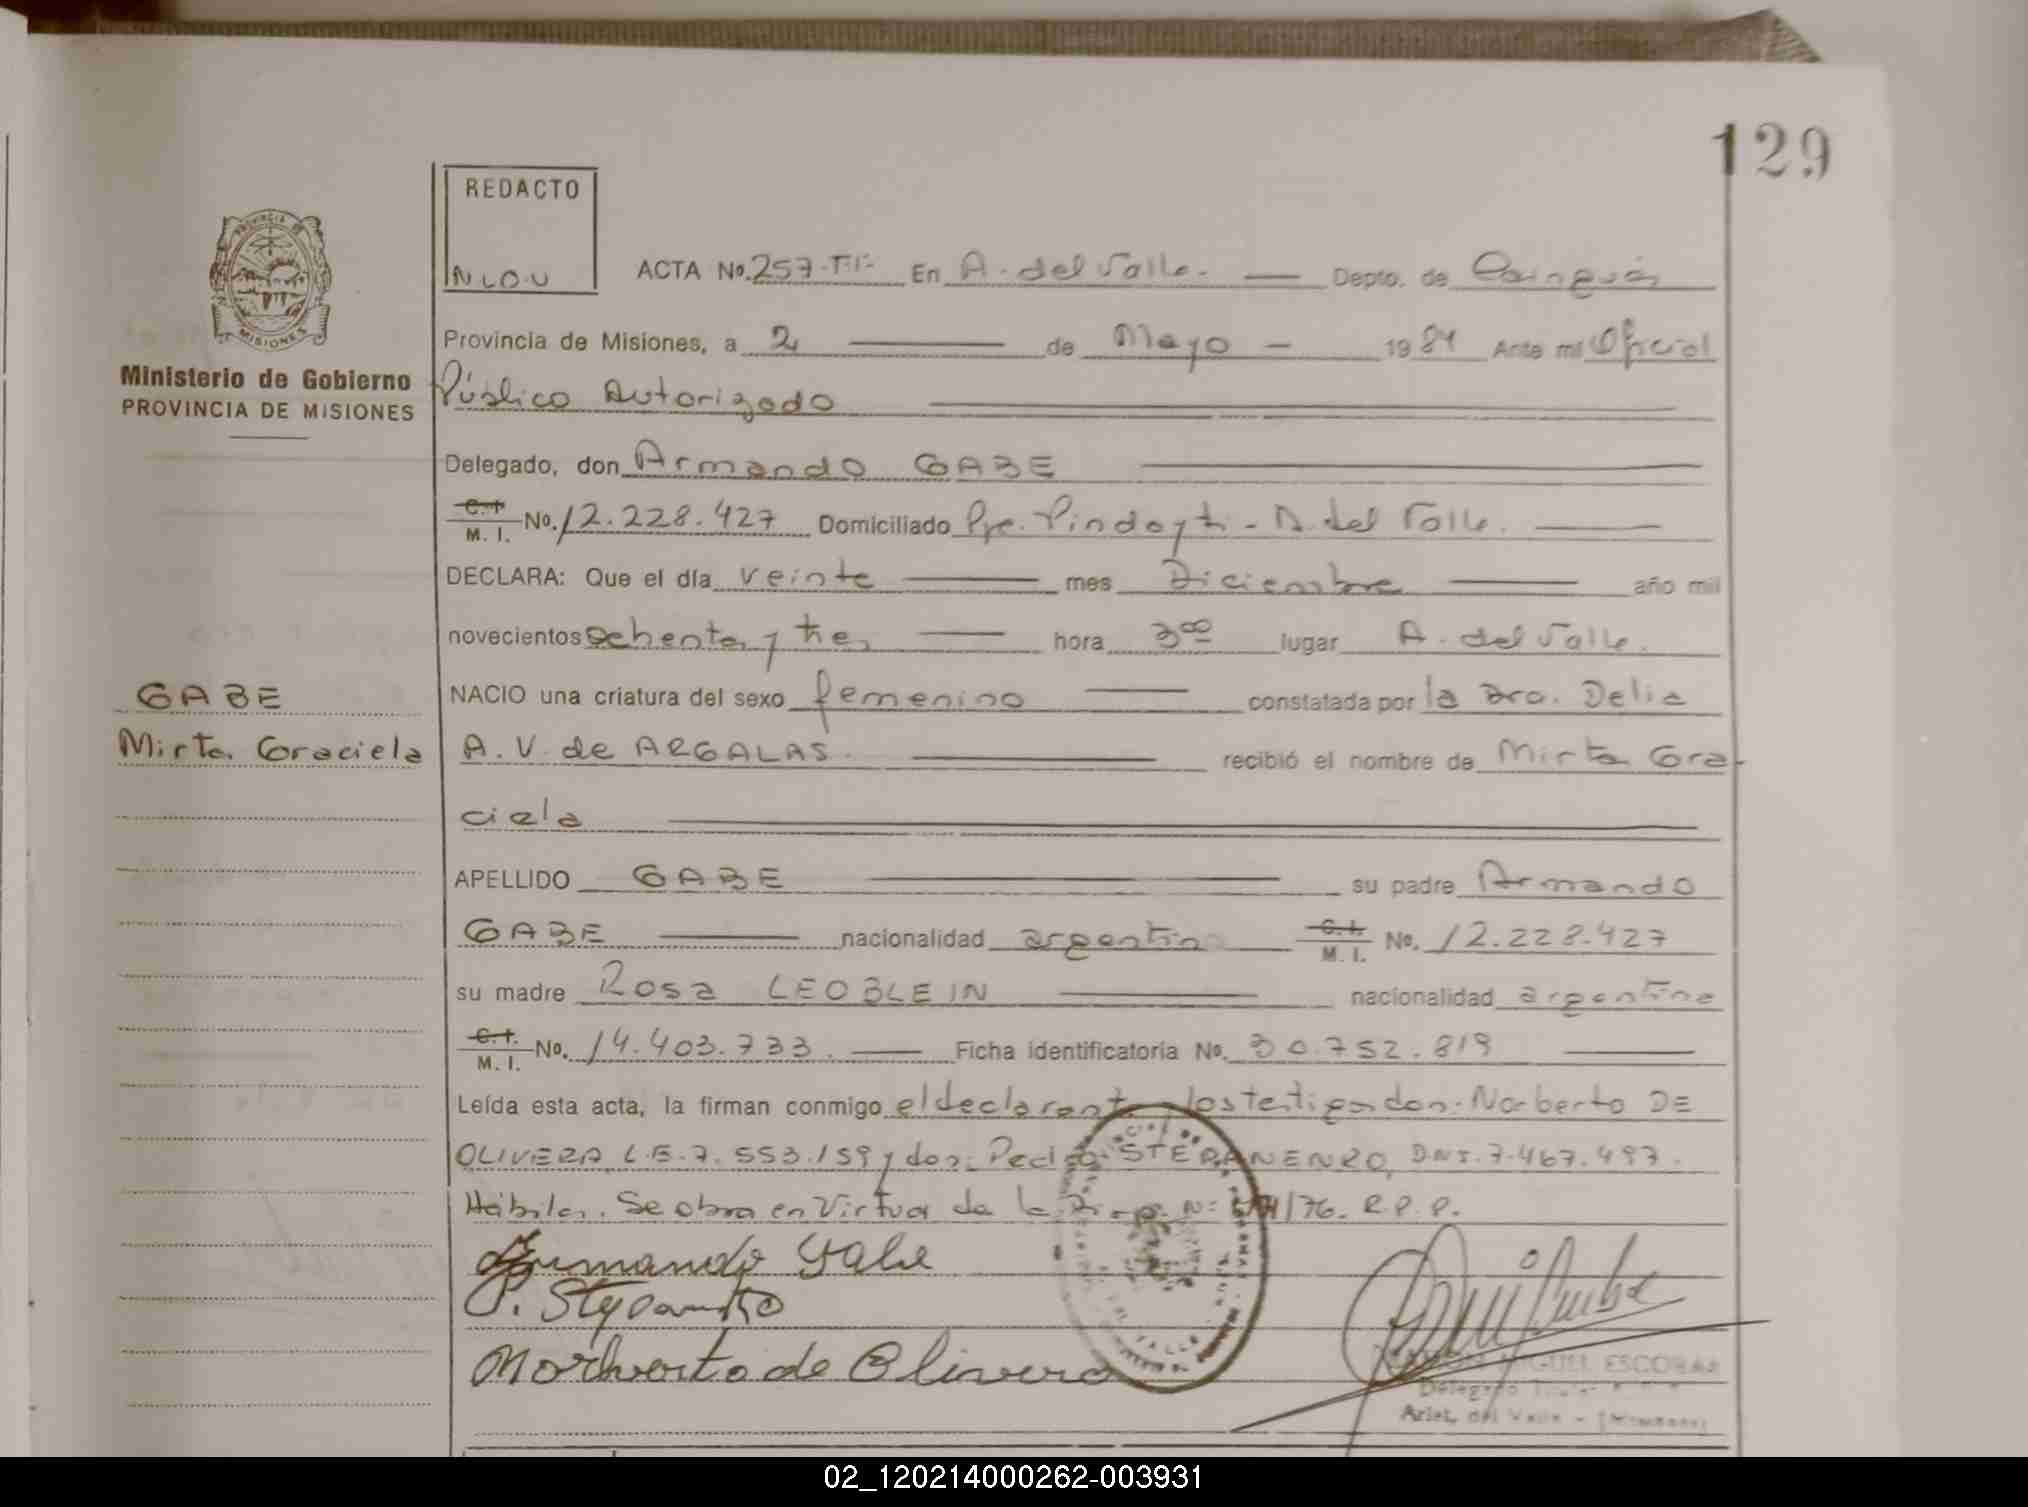 129
REDACTO
N.L.O.U
ACTA No. 257-T.I- En A. del Valle. Depto. de Cainguás
Provincia de Misiones, a 2 de Mayo 1984 Ante mi Oficial
Ministerio de Gobierno
PROVINCIA DE MISIONES
Público Autorizado
Delegado, don Armando GABE
C. I. M. I. No. 12.228.427 Domiciliado Pje. Pindayti - A. del Valle.
DECLARA: Que el día veinte mes Diciembre año mil
novecientos ochenta y tres hora 3 00 lugar A. del Valle.
NACIO una criatura del sexo femenino constatada por la Dra. Delia
GABE
Mirta Graciela
A. V. de ARGALAS. recibió el nombre de Mirta Gra-
ciela
APELLIDO GABE su padre Armando
GABE nacionalidad argentina C. I. M. I. No. 12.228.427
su madre Rosa LEOBLEIN nacionalidad argentina
C. I. M. I. No. 14.403.733. Ficha identificatoria No. 30.752.819
Leída esta acta, la firman conmigo el declarante y los testigos don: Norberto DE
OLIVERA, L.E. 7.553.159 y don: Pedro DNI. 7.467.497.
Hábiles. Se obra en Virtud de la Disp. Nº /76. R.P.P.
Armando Gabe
Norberto de Olivera
MIGUEL ESCOBAR
Delegado Titular
Arist. del Valle - (Misiones)
02_120214000262-003931